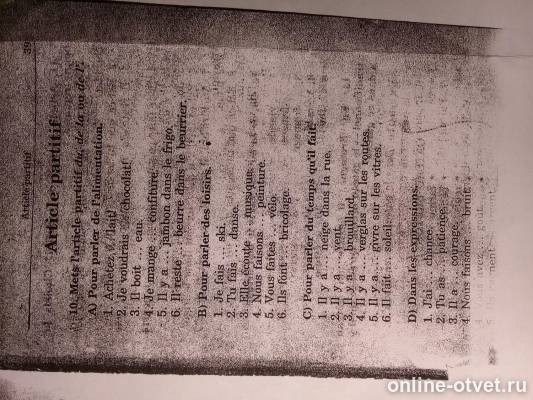 Article partitif 39
Article partitif
10. Mets l'article partitif du, de la ou de l'.
A) Pour parler de l'alimentation.
1. Achetez ... lait!
2. Je voudrais ... chocolat!
3. Il boit ... eau.
4. Je mange ... confiture.
5. Il y a ... jambon dans le frigo.
6. Il reste ... beurre dans le beurrier.
B) Pour parler des loisirs.
1. Je fais ... ski.
2. Tu fais ... danse.
3. Elle écoute ... musique.
4. Nous faisons ... peinture.
5. Vous faites ... vélo.
6. Ils font ... bricolage.
C) Pour parler du temps qu'il fait.
1. Il y a ... neige dans la rue.
2. Il y a ... vent.
3. Il y a ... brouillard.
4. Il y a ... verglas sur les routes.
5. Il y a ... givre sur les vitres.
6. Il fait ... soleil.
D) Dans les expressions.
1. J'ai ... chance.
2. Tu as ... patience.
3. Il a ... courage.
4. Nous faisons ... bruit.
online-otvet.ru